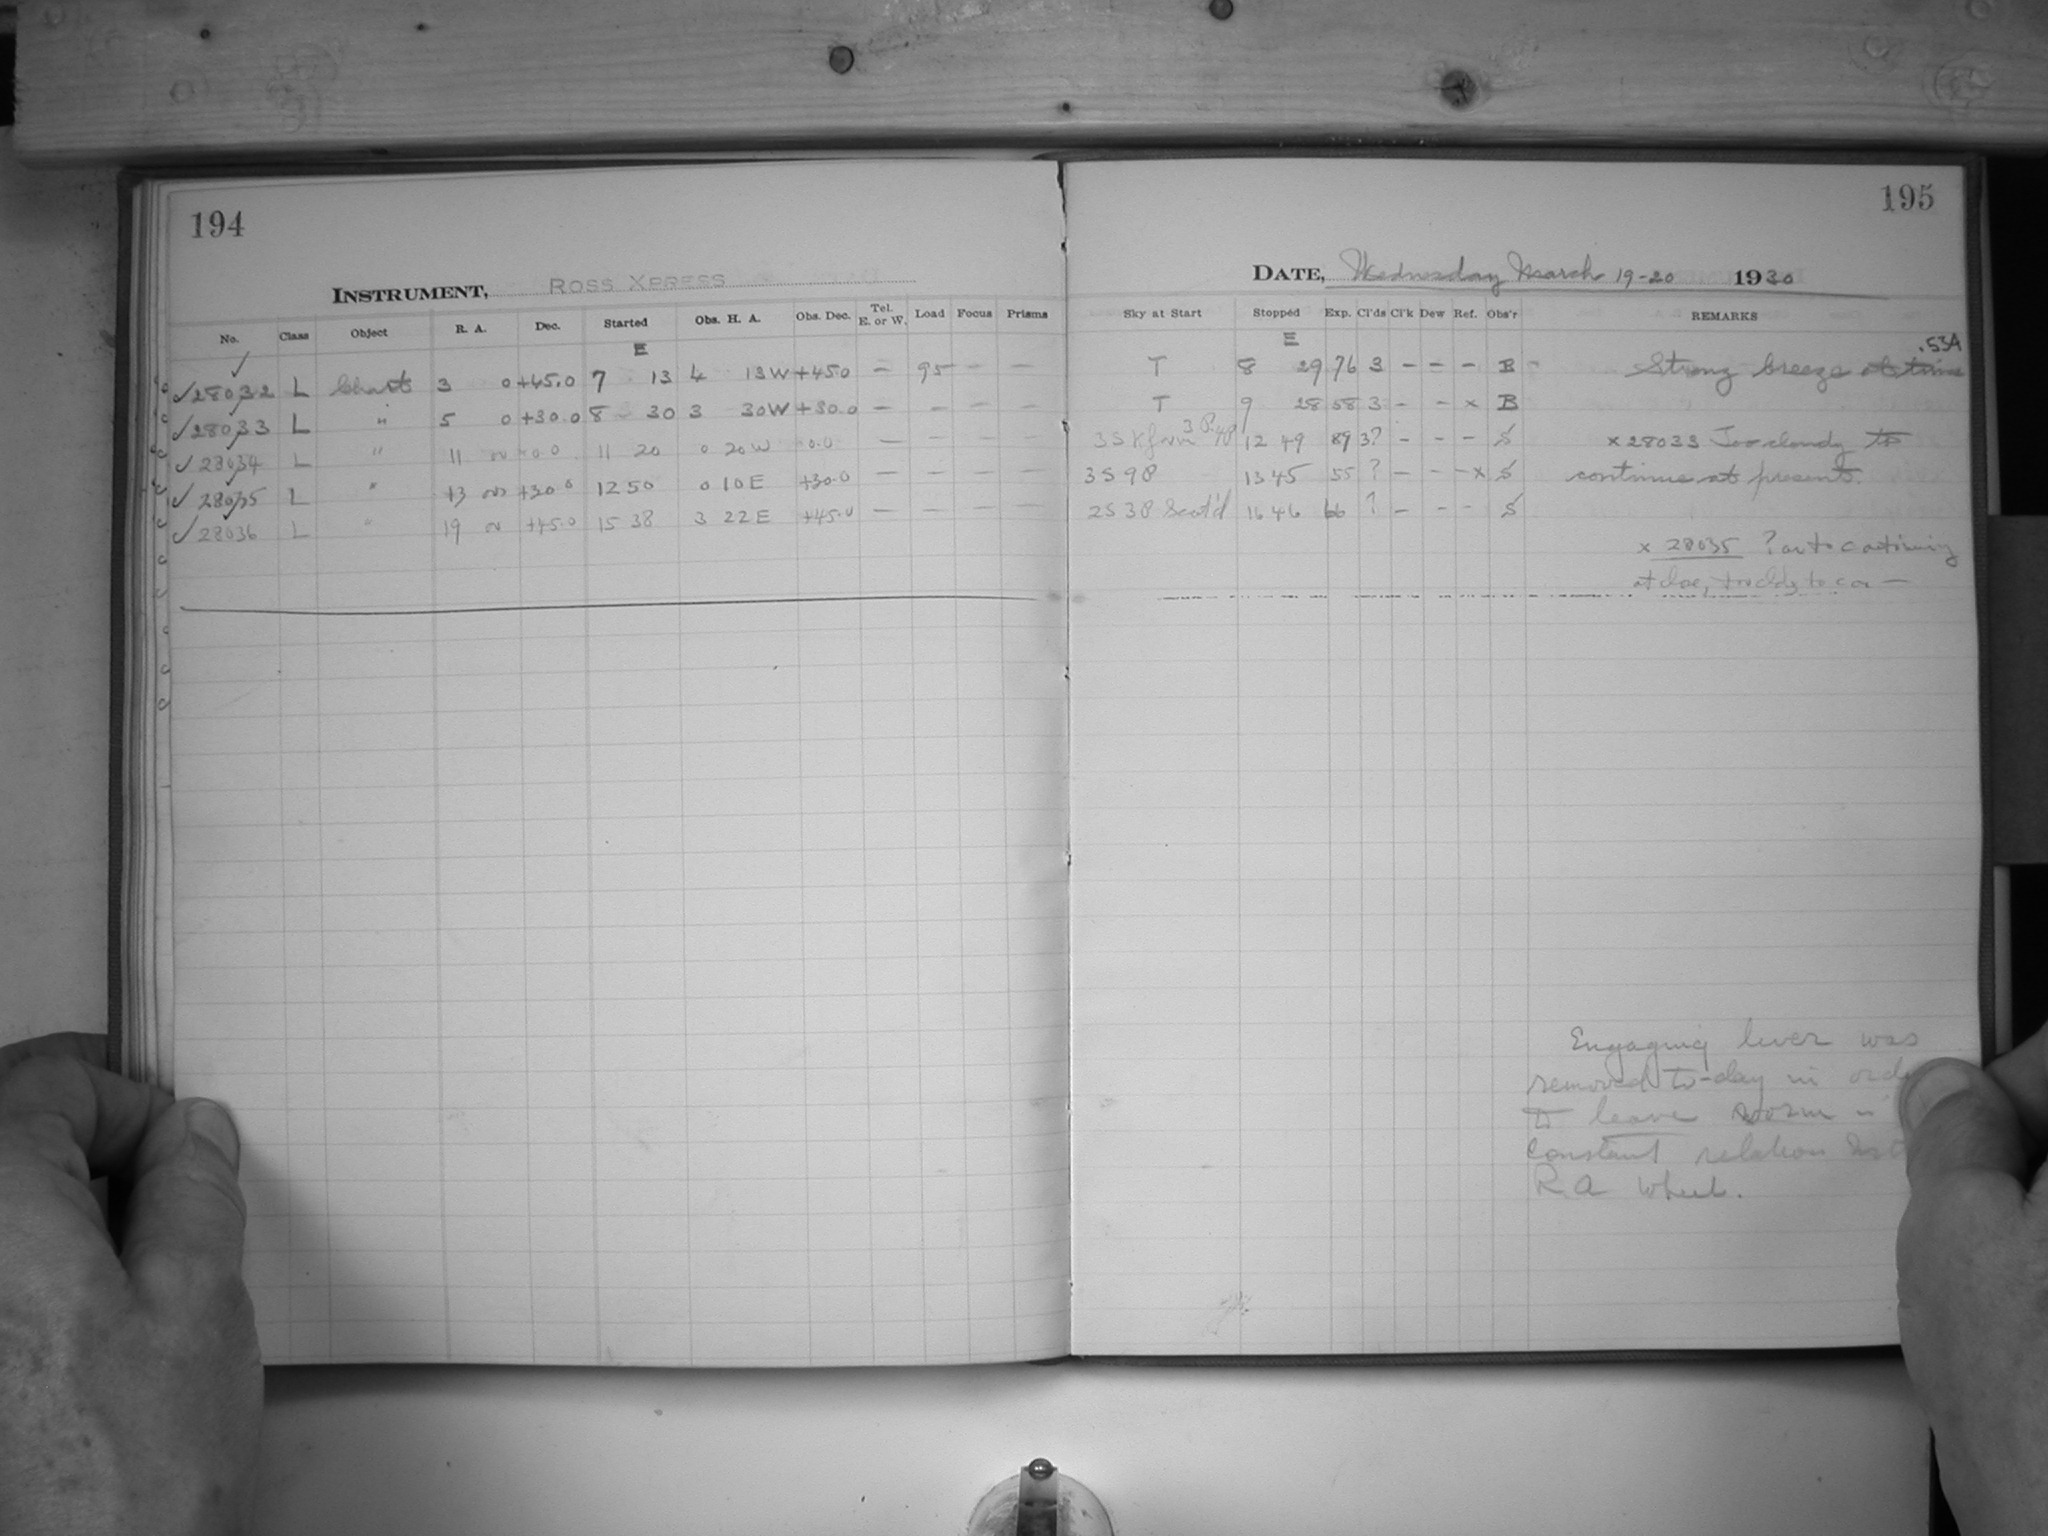 194
195
INSTRUMENT, ROSS XPRESS
DATE, Wednesday March 19-20 1930
No. Class Object R. A. Dec. Started Obs. H. A. Obs. Dec. Tel. E. or W. Load Focus Prisms Sky at Start Stopped Exp. Cl'ds Cl'k Dew Ref. Obs'r REMARKS
E E .53A
✓28032 L Chart 3 0 +45.0 7 13 4 13W +45.0 — 95 — — T 8 29 76 3 — — — B Strong breeze at time
✓28033 L " 5 0 +30.0 8 30 3 30W +30.0 — — — — T 9 28 58 3 — — × B
✓28034 L " 11 20 0 20W 0.0 — — — — 12 49 89 3? — — — S × 28033 Too cloudy to
✓28035 L " 13 +30.0 12 50 0 10E +30.0 — — — — 3S 9P 13 45 55 ? — — — × S continue at present.
✓28036 L " 19 +45.0 15 38 3 22E +45.0 — — — — 2S 3P Scat'd 16 46 66 ? — — — S
× 28035 ? as to continuing
at close, to
Engaging lever was
removed to-day in
to leave worm in
constant relation
R.A wheel.